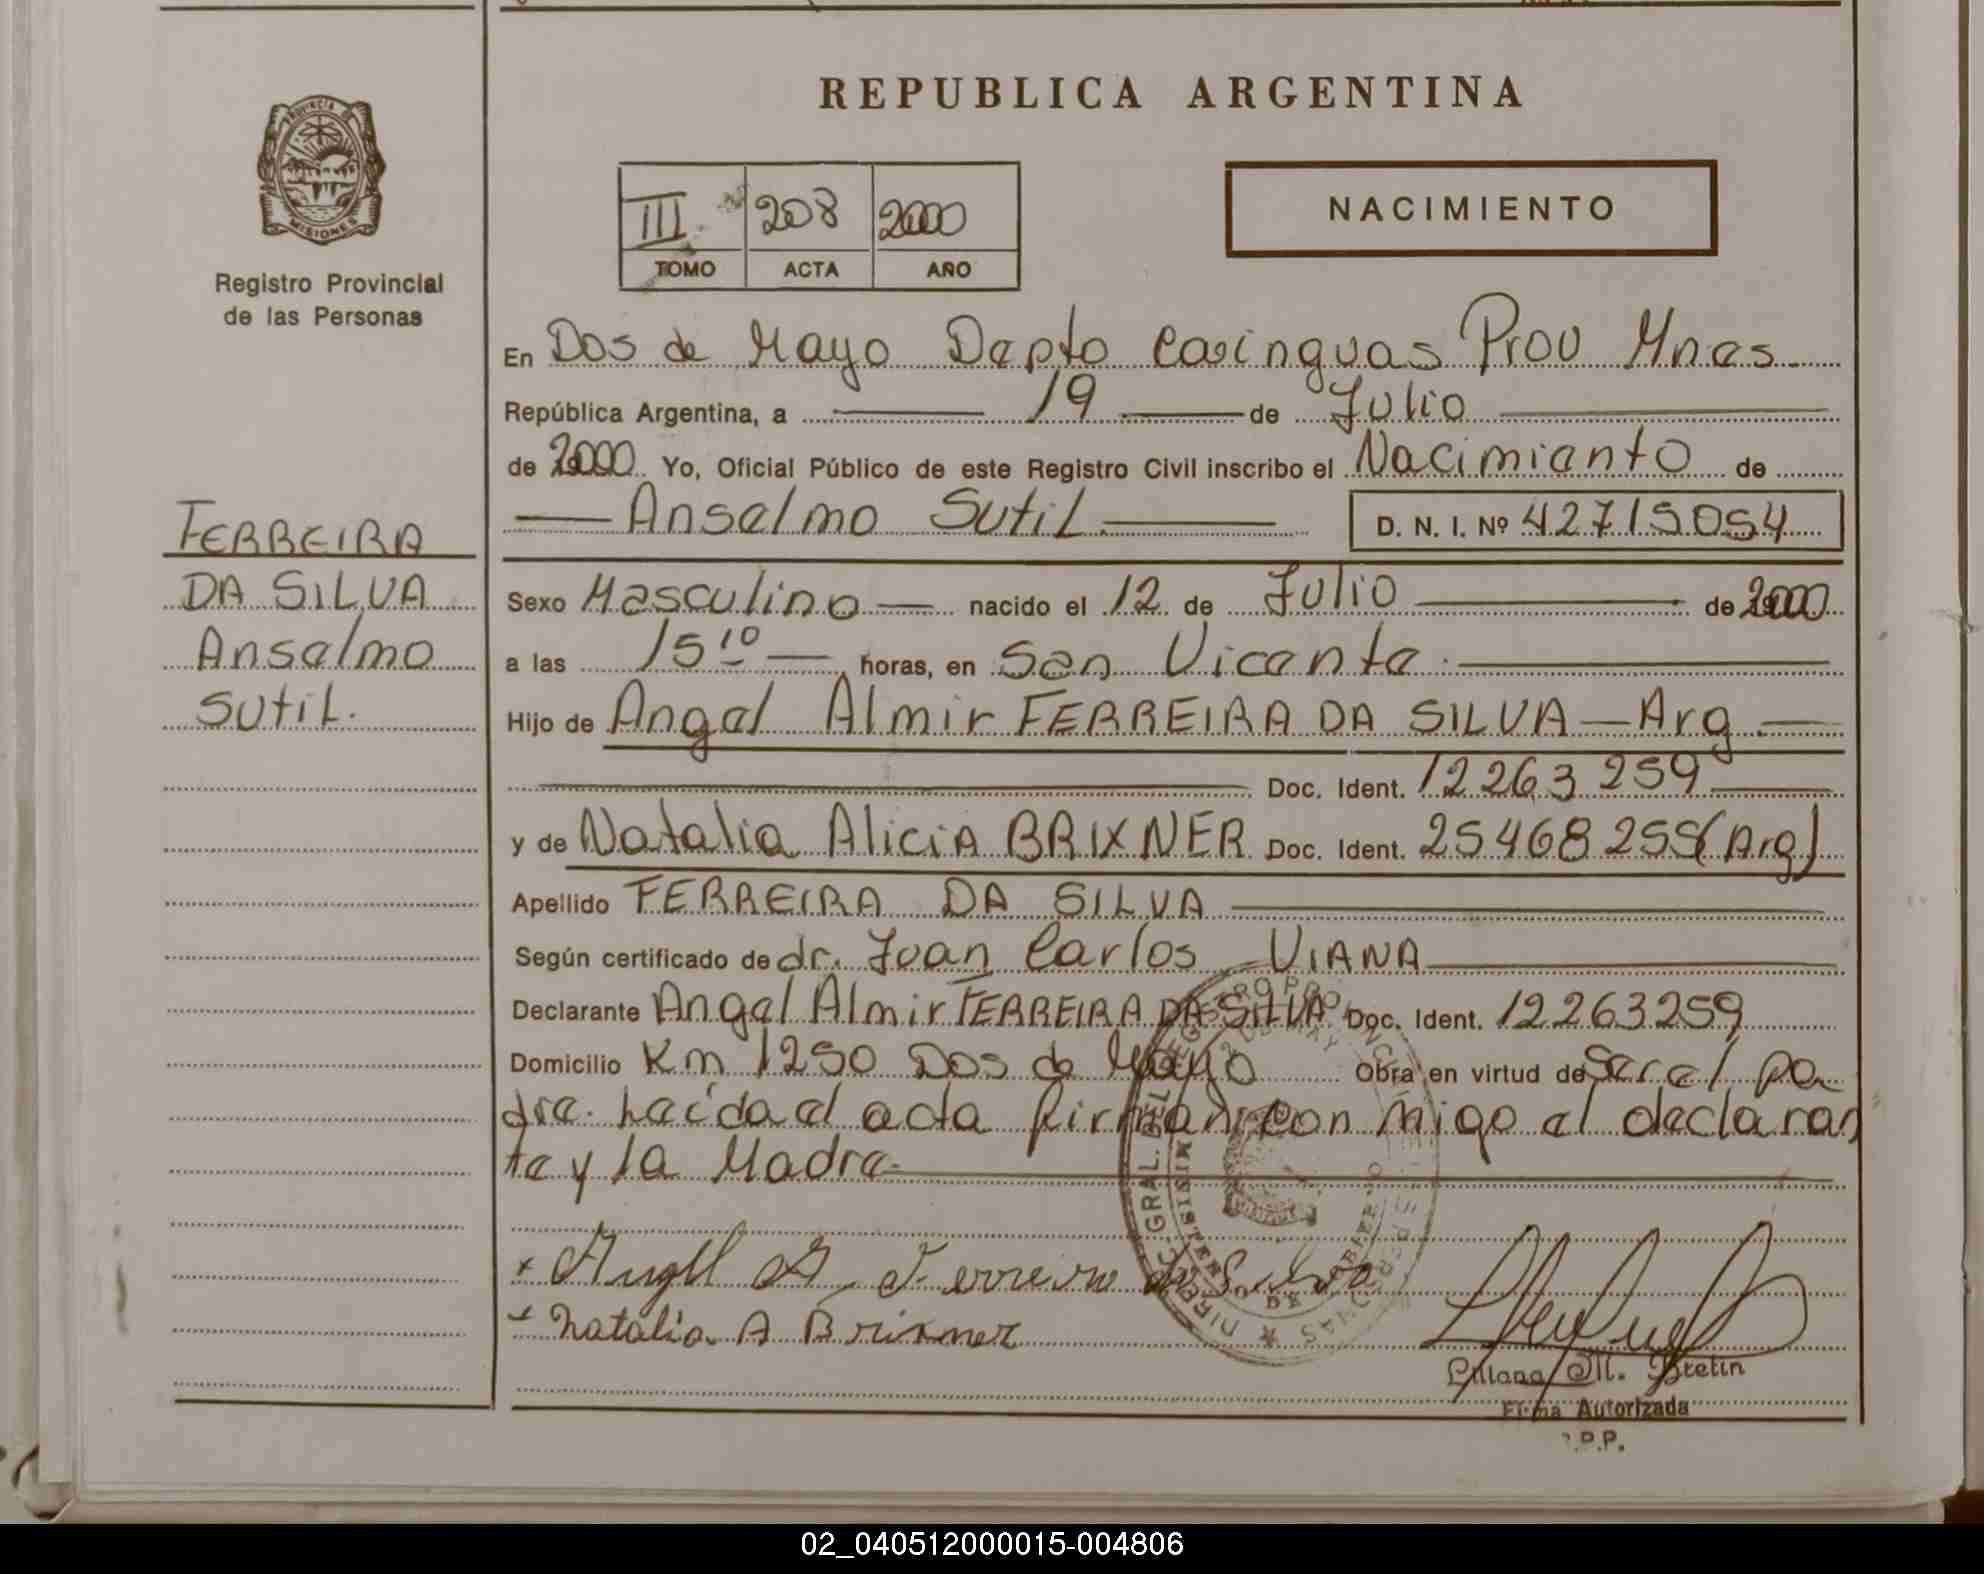 REPUBLICA ARGENTINA
PROVINCIA DE MISIONES
Registro Provincial
de las Personas
III 208 2000
TOMO ACTA AÑO
NACIMIENTO
En Dos de Mayo Depto Cainguas Prov Mnes
República Argentina, a 19 de Julio
de 2000 Yo, Oficial Público de este Registro Civil inscribo el Nacimiento de
Anselmo Sutil. D. N. I. Nº 42715054
FERREIRA
DA SILVA
Anselmo
Sutil.
Sexo Masculino nacido el 12 de Julio de 2000
a las 15 10 horas, en San Vicente
Hijo de Angel Almir FERREIRA DA SILVA — Arg.
Doc. Ident. 12263259
y de Natalia Alicia BRIXNER Doc. Ident. 25468255 (Arg)
Apellido FERREIRA DA SILVA
Según certificado de dr. Juan Carlos VIANA
Declarante Angel Almir FERREIRA DA SILVA Doc. Ident. 12263259
Domicilio Km 1250 Dos de Mayo Obra en virtud de Ser el pa
dre. Leída el acta firman con migo el declaran
te y la Madre.
Natalia A Brixner
M. Bretin
Firma Autorizada
R.P.P.
02_040512000015-004806